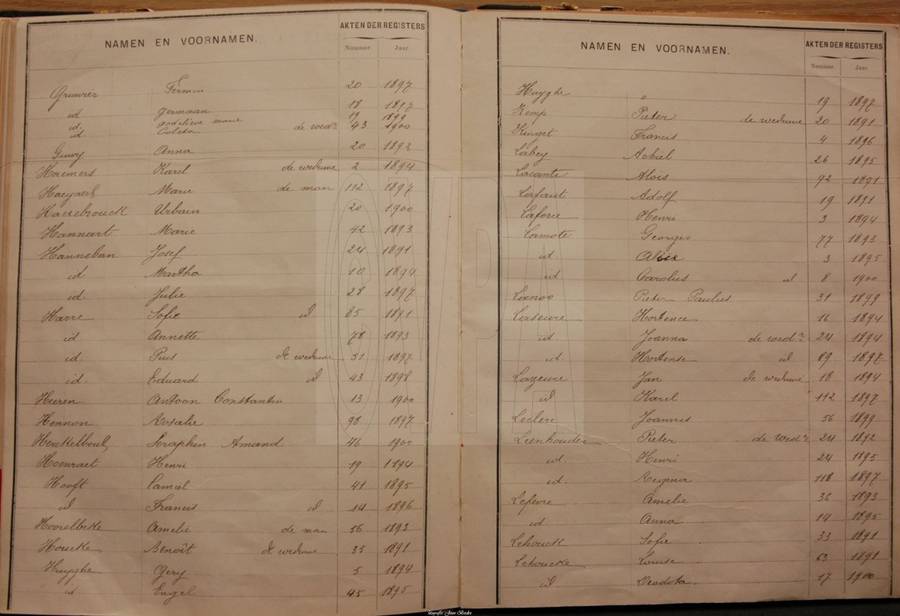 NAMEN EN VOORNAMEN. AKTEN DER REGISTERS
Nummer. Jaar.
Firmin 20 1897
id germaan 18 1897
id godelieve marie 19 1899
id de wed? 43 1900
Anna 20 1892
Haemers Karel de weduwe 2 1894
Marie de man 112 1897
Haezebrouck Urbain 20 1900
Hannaert Marie 42 1893
Hanneban Josef 24 1891
id Martha 10 1894
id Julie 28 1897
Havre Sofie id 85 1891
id Annette 78 1893
id. Pius de weduwe 31 1897
id. Eduard id 43 1898
Heeren Antoon Constantin 13 1900
Hennon Rosalie 98 1897
Seraphin Amand 46 1900
Henri 19 1894
Hooft Camiel 41 1895
id Francis id 14 1896
Hoorelbeke Amelie de man 56 1893
Houcke Benoît de weduwe 33 1891
Huyghe Gery 5 1894
id Engel 45 1895
NAMEN EN VOORNAMEN. AKTEN DER REGISTERS
Nummer. Jaar.
Huyghe 19 1897
Kemp Pieter de weduwe 20 1891
Francis 4 1896
Labey Achiel 26 1895
Lacante Alois 92 1891
Lafaut Adolf 19 1891
Laforce Henri 3 1894
Lamote Georges 77 1893
id 3 1895
id Carolus id 8 1900
Lanoo Pieter Paulus 31 1899
Laseure Hortence 16 1894
id Joanna de wed? 24 1894
id. Hortense id 89 1897
Lazeure Jan de weduwe 18 1894
id Karel 112 1897
Leclerc Joannes 56 1899
Leenhouder Pieter de wed? 24 1892
id Henri 24 1895
id Regina 118 1897
Lefevre Amelie 36 1893
id Anna 14 1895
Lehouck Sofie 33 1891
Lehoucke Louise 63 1891
id 17 1900